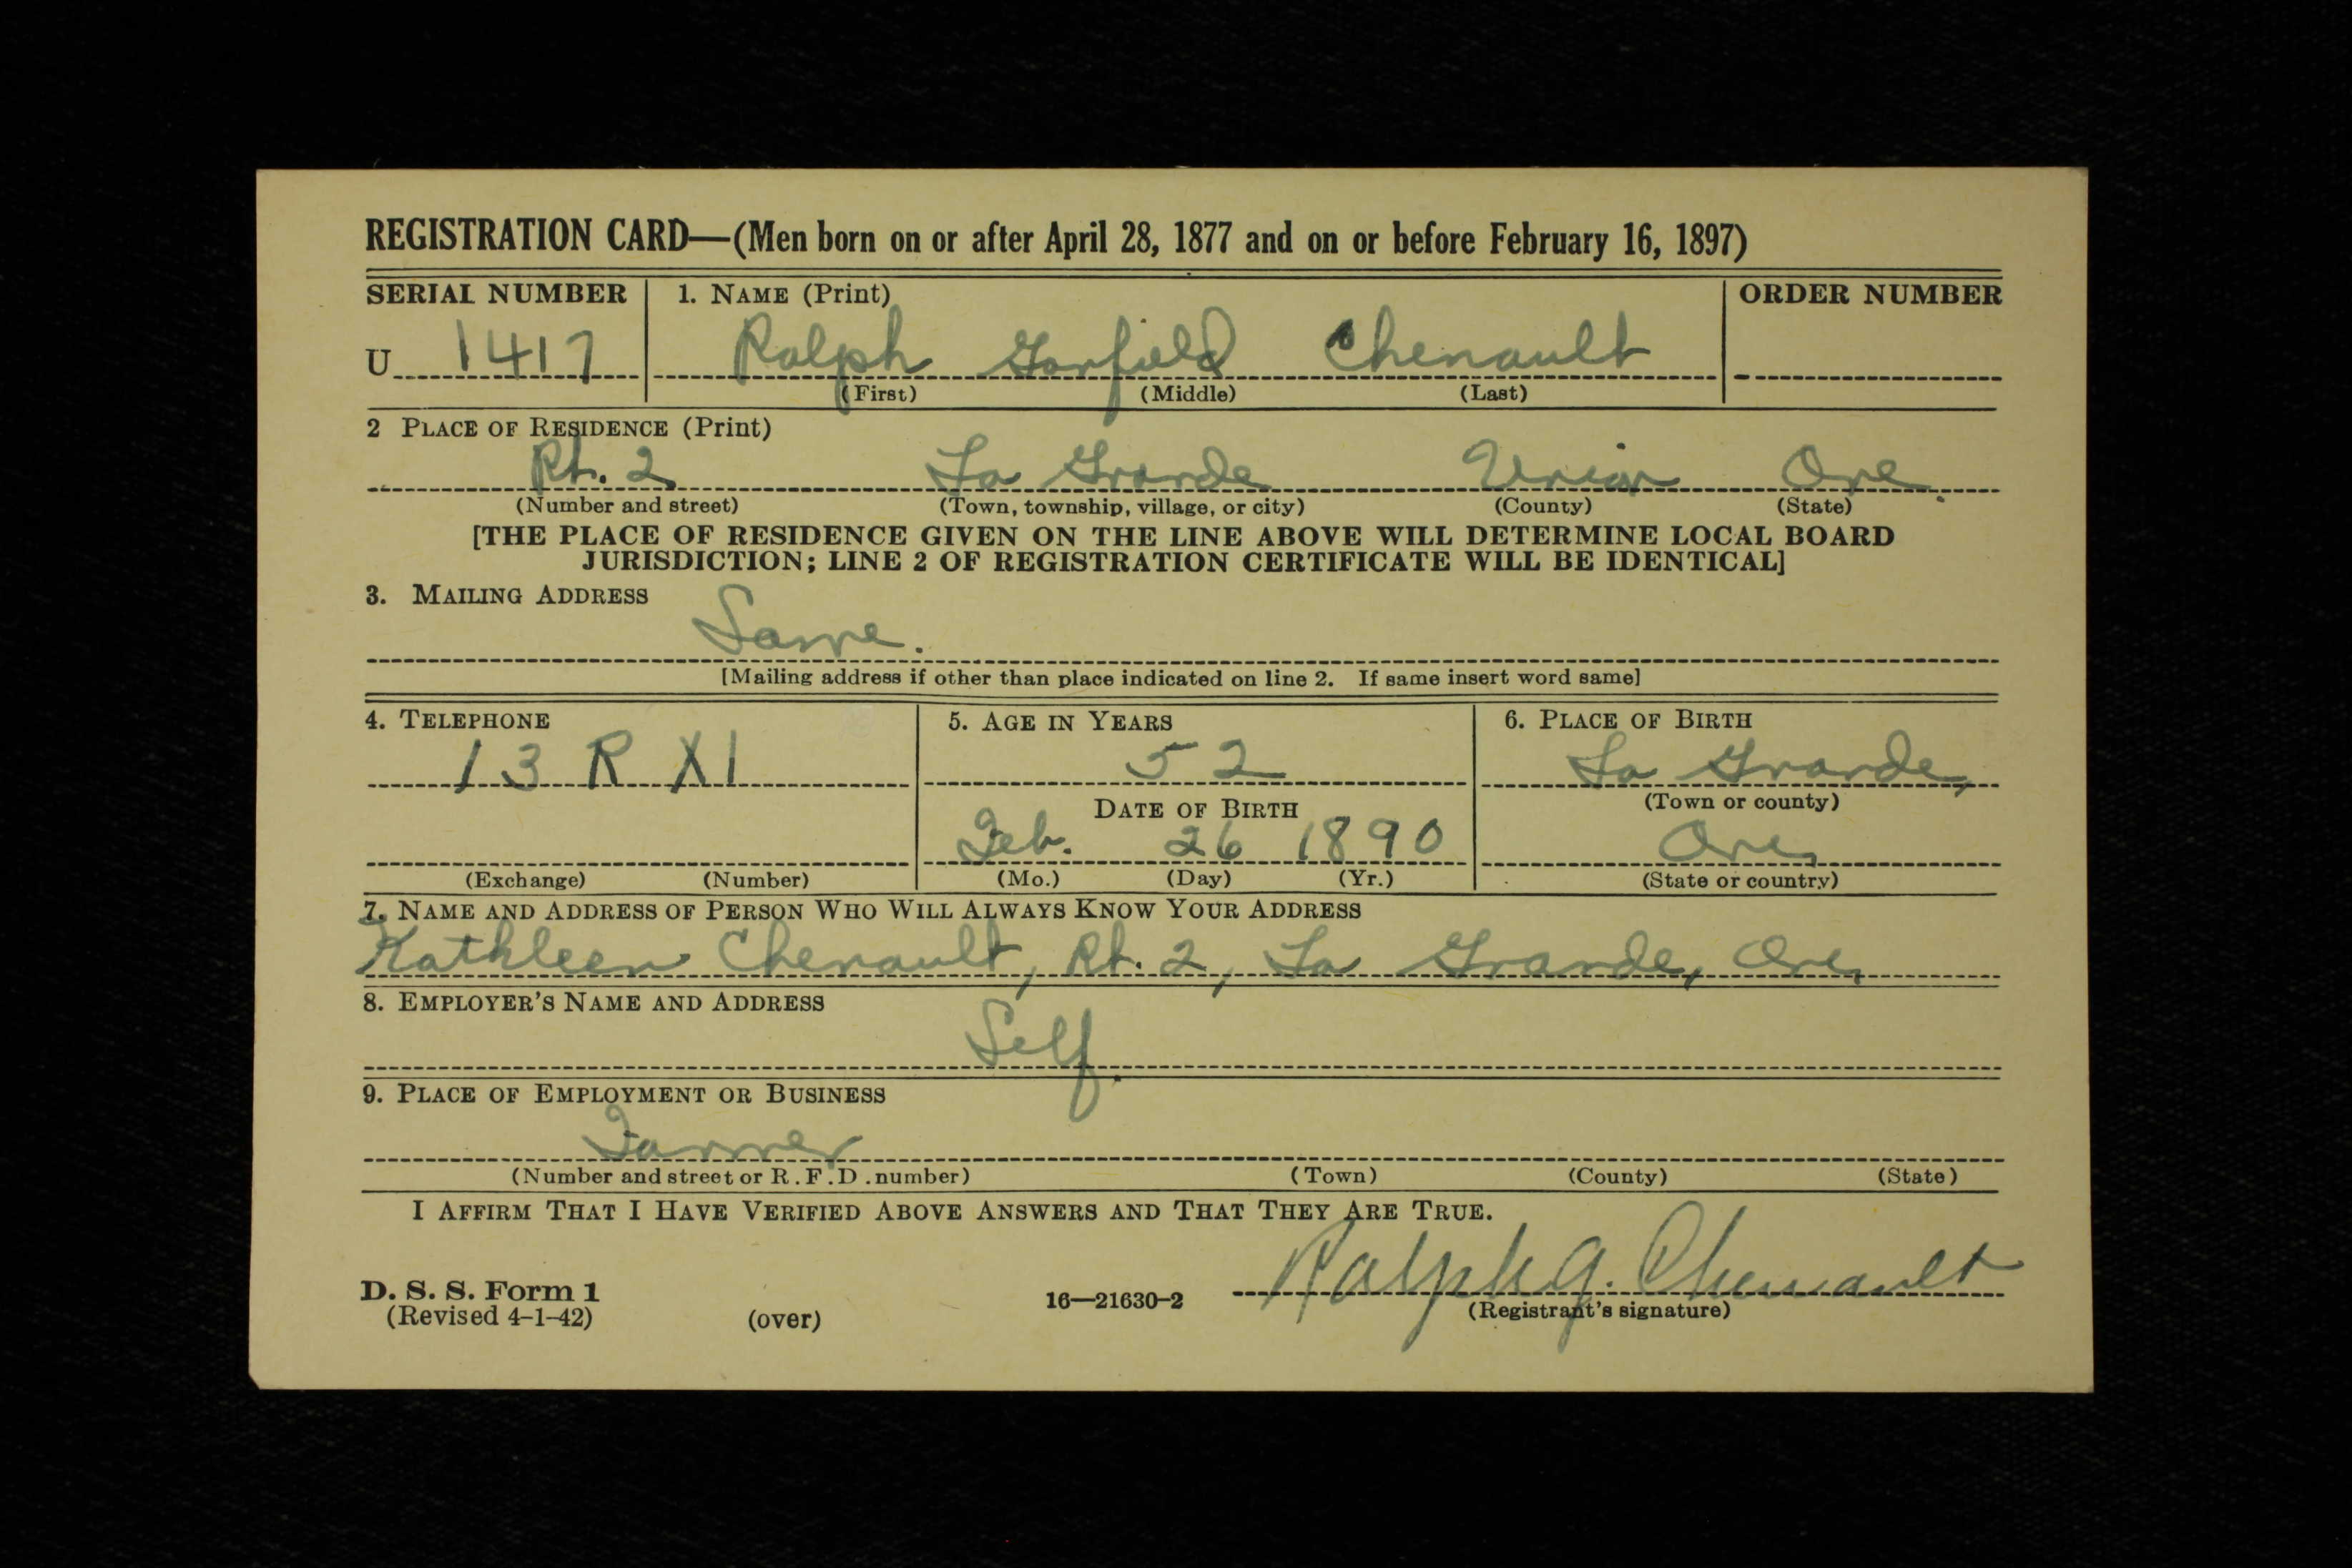 REGISTRATION CARD—(Men born on or after April 28, 1877 and on or before February 16, 1897)
SERIAL NUMBER 1. NAME (Print) ORDER NUMBER
U 1417 Ralph Garfield Chenault
(First) (Middle) (Last)
2 PLACE OF RESIDENCE (Print)
Rt. 2 La Grande Union Ore.
(Number and street) (Town, township, village, or city) (County) (State)
[THE PLACE OF RESIDENCE GIVEN ON THE LINE ABOVE WILL DETERMINE LOCAL BOARD
JURISDICTION; LINE 2 OF REGISTRATION CERTIFICATE WILL BE IDENTICAL]
3. MAILING ADDRESS
Same.
[Mailing address if other than place indicated on line 2. If same insert word same]
4. TELEPHONE 5. AGE IN YEARS 6. PLACE OF BIRTH
13 R X1 52 La Grande,
DATE OF BIRTH (Town or county)
Feb. 26 1890 Ore.
(Exchange) (Number) (Mo.) (Day) (Yr.) (State or country)
7. NAME AND ADDRESS OF PERSON WHO WILL ALWAYS KNOW YOUR ADDRESS
Kathleen Chenault, Rt. 2, La Grande, Ore.
8. EMPLOYER'S NAME AND ADDRESS
Self.
9. PLACE OF EMPLOYMENT OR BUSINESS
Farmer
(Number and street or R. F. D. number) (Town) (County) (State)
I AFFIRM THAT I HAVE VERIFIED ABOVE ANSWERS AND THAT THEY ARE TRUE.
Ralph G. Chenault
D. S. S. Form 1
(Revised 4-1-42) (over) 16—21630-2 (Registrant's signature)